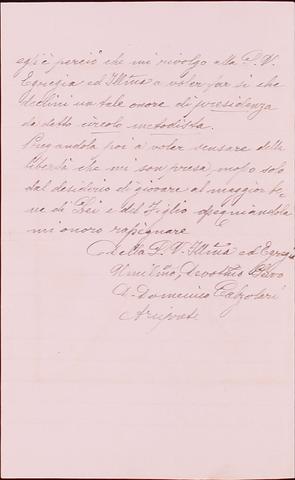 egli è perciò che mi rivolgo alla S. V.
Egregia ed Ill͞ma a voler far sì che
declini un tale onore di presidenza
da detto circolo metodista.
Pregandola poi a voler scusare della
libertà che mi son presa, mosso solo
dal desiderio di giovare al maggior be-
ne di Lei e del Figlio ossequiandola
mi onoro rassegnare
Della S. V. Ill͞ma ed Egregia
Umil͞mo, Devot͞mo Servo
D. Domenico